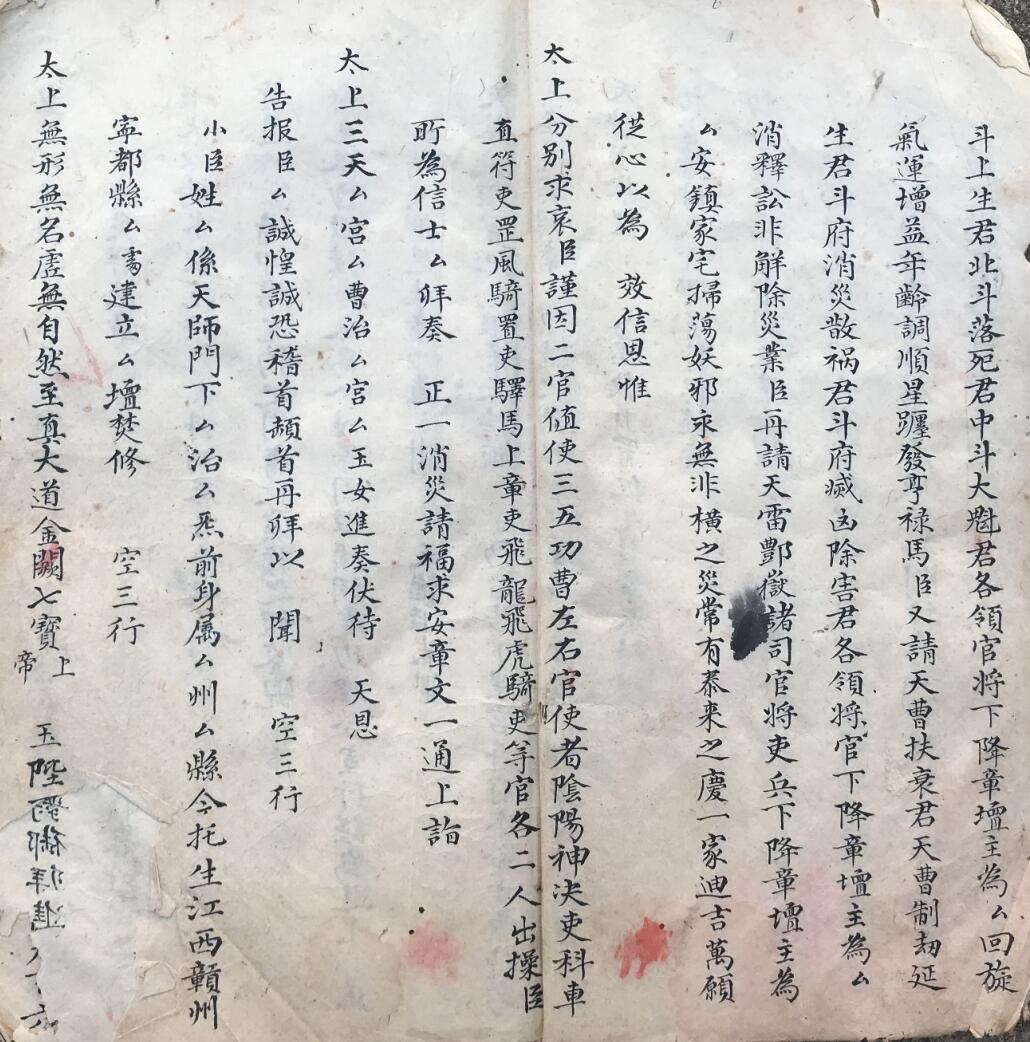 斗上生君北斗落死君中斗大魁君各領官将下降章壇主為厶回旋
氣運增益年齡調順星躔發亨禄馬臣又請天曹扶衰君天曹制劫延
生君斗府消災散禍君斗府滅凶除害君各領将官下降章壇主為厶
消釋訟非解除災業臣再請天雷酆嶽諸司官将吏兵下降章壇主為
厶安鎮家宅掃蕩妖邪永無非横之災常有泰来之慶一家迪吉萬願
從心以為 效信恩惟
太上分别求哀臣謹因二官值使三五功曹左右官使者隂陽神决吏科車
直符吏罡風騎置吏驛馬上章吏飛龍飛虎騎吏等官各二人出操臣
所為信士厶拜奏 正一消災請福求安章文一通上詣
太上三天厶宫厶曹治厶宫厶玉女進奏伏待 天恩
告报臣厶誠惶誠恐稽首頓首再拜以 聞 空三行
小臣姓厶係天師門下厶治厶炁前身属厶州厶縣令托生江西贛州
寕都縣厶處建立厶壇焚修 空三行
太上無形無名虚無自然至真大道金闕七寶上帝 玉陛